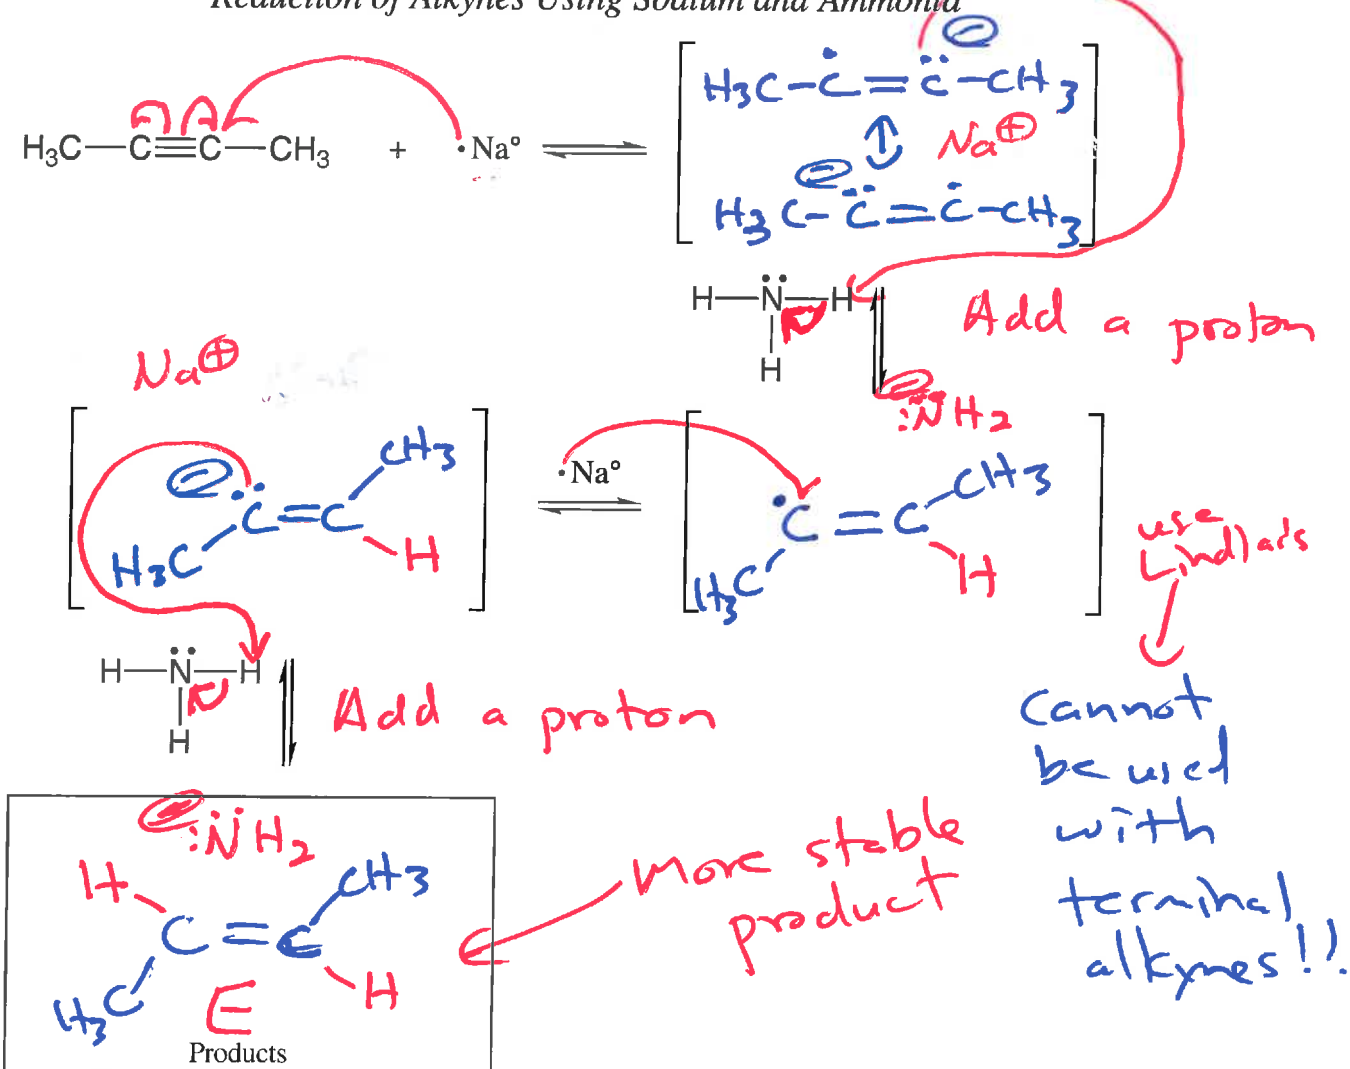 Reduction of Alkynes Using Sodium and Ammonia
H₃C—C≡C—CH₃ + ·Na° 
H3C–Ċ=C̈–CH3 ⊖
Na⊕
⊖
H3C–C̈=Ċ–CH3
H—N̈—H
H
Add a proton
⊖
:N̈H2
Na⊕
⊖
CH3
C=C
H3C
H
·Na°
CH3
·C=C
H3C
H
use
Lindlar's
H—N̈—H
H
Add a proton
Cannot
be used
with
terminal
alkynes!!
⊖
:N̈H2
H
CH3
C=C
H3C
H
E
Products
More stable
product